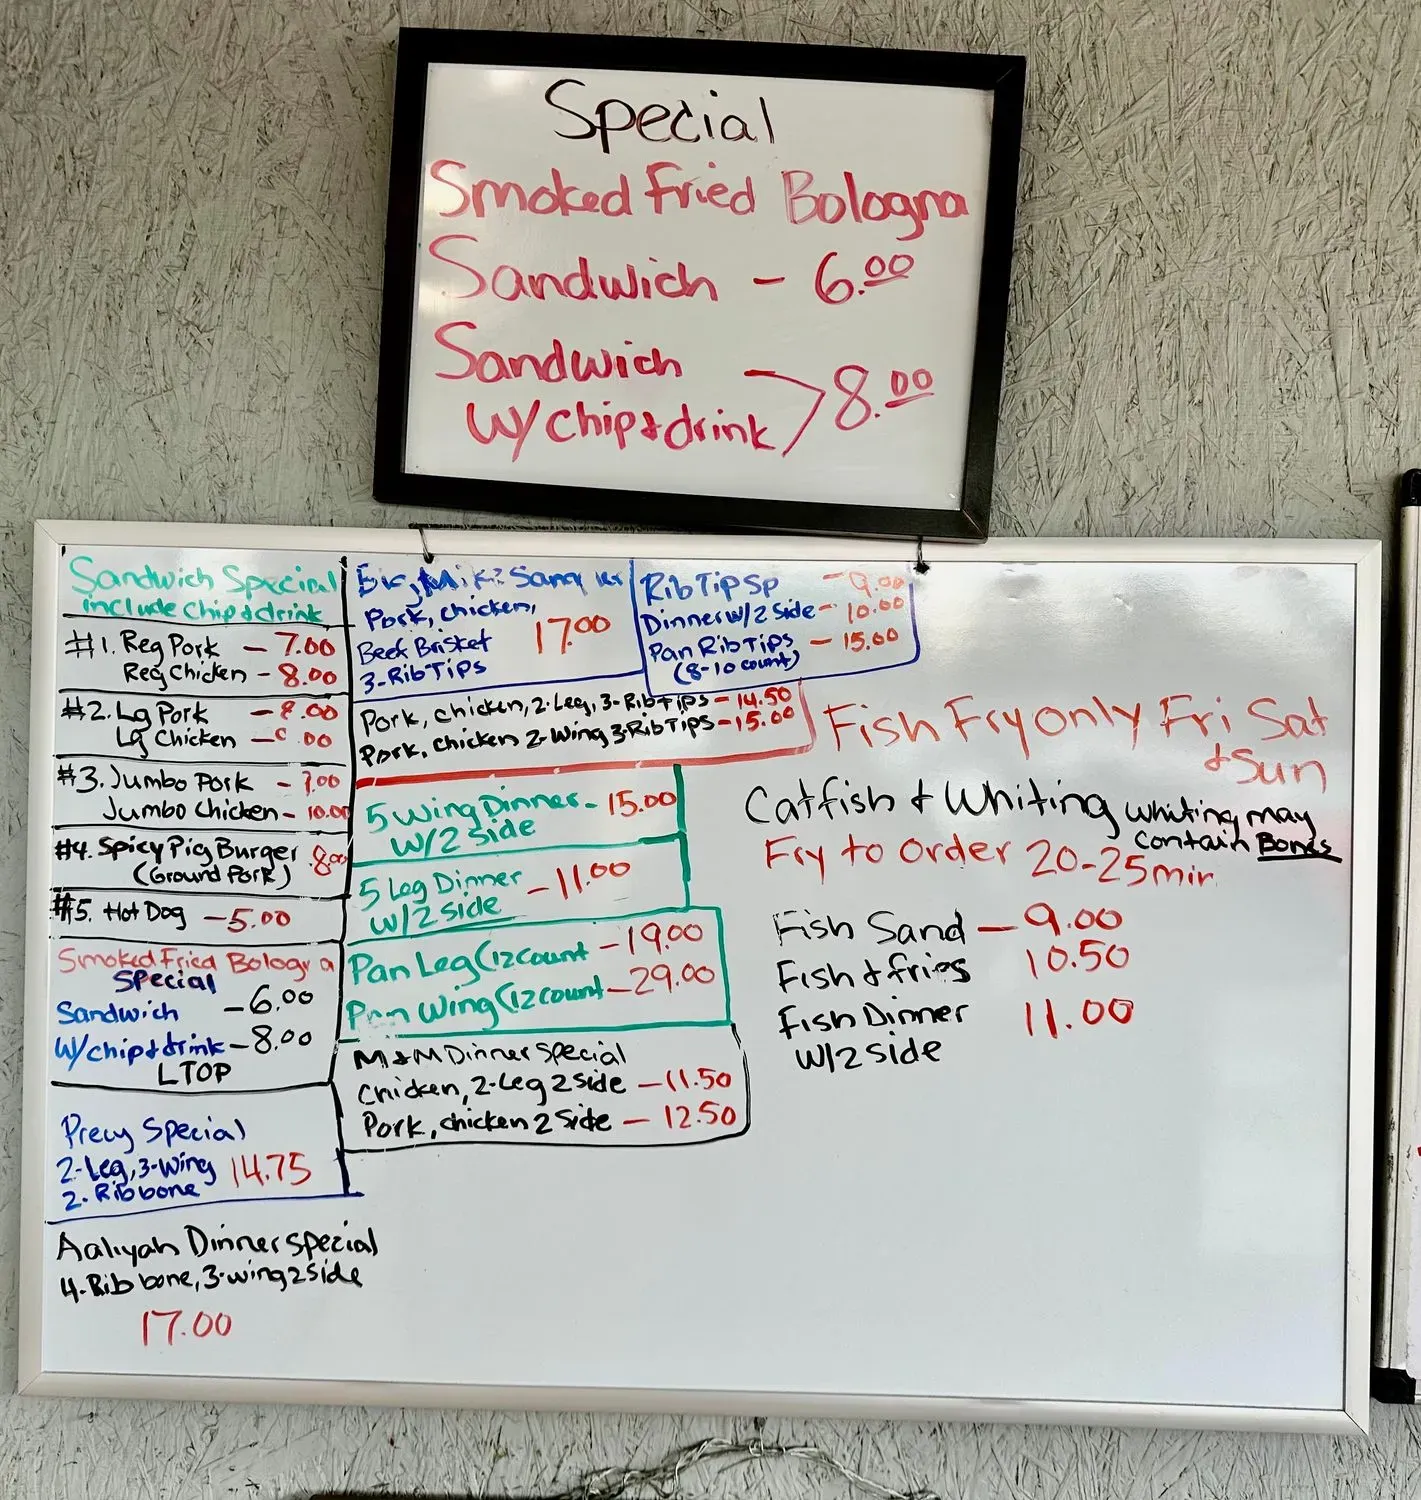 Special
Smoked Fried Bologna
Sandwich - 6.00
Sandwich
w/chip & drink > 8.00
Sandwich Special
include chip & drink
#1. Reg Pork - 7.00
Reg Chicken - 8.00
#2. Lg Pork - 8.00
Lg Chicken - .00
#3. Jumbo Pork - 9.00
Jumbo Chicken - 10.00
#4. Spicy Pig Burger 8.00
(Ground Pork)
#5. Hot Dog - 5.00
Smoked Fried Bologna
Special
Sandwich - 6.00
w/chip & drink - 8.00
LTOP
Precy Special
2-Leg, 3-wing 14.75
2-Rib bone
Aaliyah Dinner special
4-Rib bone, 3-wing 2 side
17.00
Big Mike
Pork, chicken,
Beef Brisket 17.00
3-Rib Tips
Rib Tip SP - 9.00
Dinner w/2 side - 10.00
Pan Rib Tips - 15.00
(8-10 count)
Pork, chicken, 2-Leg, 3-Rib tips - 14.50
Pork, chicken 2-wing 3-Rib Tips - 15.00
5 wing Dinner - 15.00
w/2 side
5 Leg Dinner - 11.00
w/2 side
Pan Leg (12 count - 19.00
Pan Wing (12 count - 29.00
M & M Dinner special
chicken, 2-Leg 2 side - 11.50
Pork, chicken 2 side - 12.50
Fish Fry only Fri Sat
& Sun
Catfish & Whiting whiting may
contain Bones
Fry to Order 20-25 min
Fish Sand - 9.00
Fish & fries 10.50
Fish Dinner 11.00
w/2 side